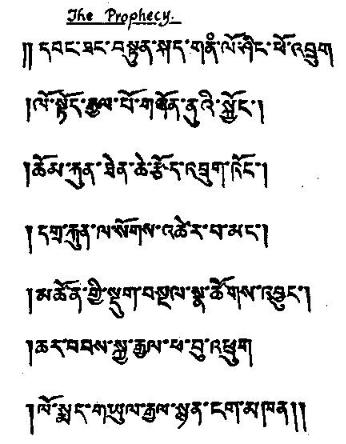 The Prophecy.
༎ དབང་ཐང་བསྟུན་སད་གནི་ལོ་ཤིང་ཕོ་འབྲུག
།ལོ་སྟོད་རྒྱལ་པོ་གཞོན་ནུའི་སྐྱོང་།
།ཆོམ་རྐུན་ཐེན་ཆེ་རྩོད་འཁྲུག་ཁོང་།
།དགྲ་རྐུན་ལ་སོགས་འཚེ་ར་བ་མང་།
།མཚོན་གྱི་སྡུག་བསྔལ་སྣ་ཚོགས་འབྱུང་།
།ཆར་བབས་སྐྱ་རྒྱལ་ཕ་བུ་འཁྲུག
།ལོ་སྨད་གཡུལ་རྒྱལ་སྙན་ངག་མཁན།།